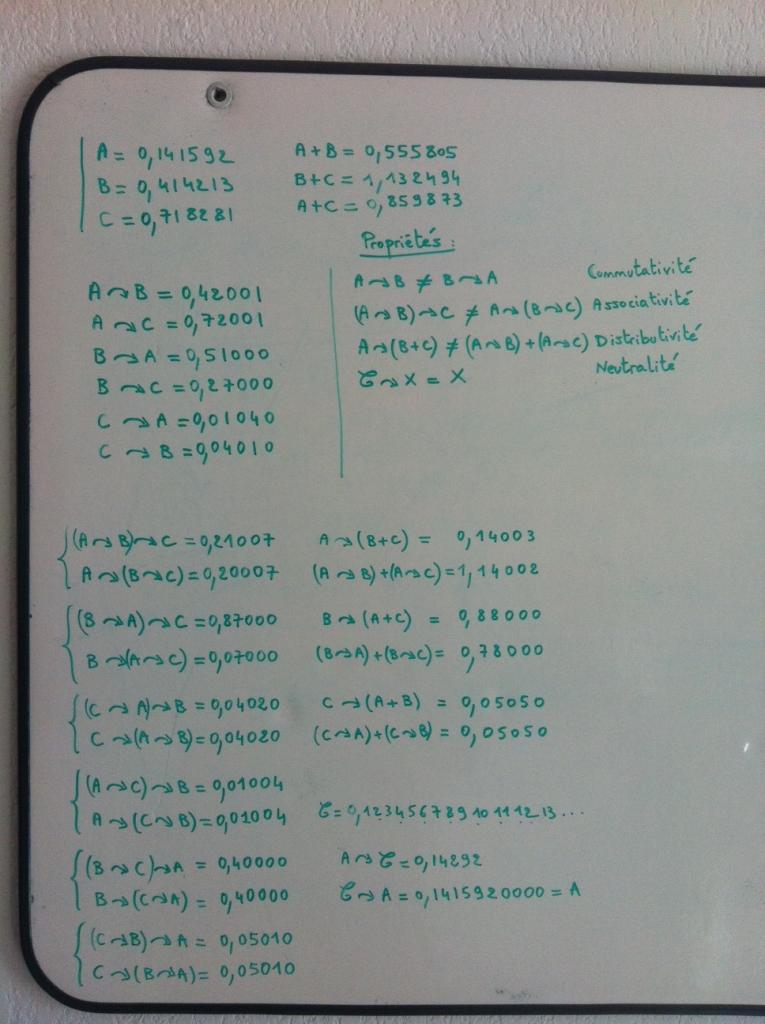 A = 0,141592
B = 0,414213
C = 0,718281
A+B = 0,555805
B+C = 1,132494
A+C = 0,859873
Propriétés :
A⤳B ≠ B⤳A Commutativité
(A⤳B)⤳C ≠ A⤳(B⤳C) Associativité
A⤳(B+C) ≠ (A⤳B)+(A⤳C) Distributivité
Neutralité
ϐ⤳X = X
A⤳B = 0,42001
A⤳C = 0,72001
B⤳A = 0,51000
B⤳C = 0,27000
C⤳A = 0,01040
C⤳B = 0,04010
(A⤳B)⤳C = 0,21007 A⤳(B+C) = 0,14003
A⤳(B⤳C) = 0,20007 (A⤳B)+(A⤳C) = 1,14002
(B⤳A)⤳C = 0,87000 B⤳(A+C) = 0,88000
B⤳(A⤳C) = 0,07000 (B⤳A)+(B⤳C) = 0,78000
(C⤳A)⤳B = 0,04020 C⤳(A+B) = 0,05050
C⤳(A⤳B) = 0,04020 (C⤳A)+(C⤳B) = 0,05050
(A⤳C)⤳B = 0,01004
A⤳(C⤳B) = 0,01004 ϐ = 0,12345678910111213...
(B⤳C)⤳A = 0,40000 A⤳ϐ = 0,14292
B⤳(C⤳A) = 0,40000 ϐ⤳A = 0,1415920000 = A
(C⤳B)⤳A = 0,05010
C⤳(B⤳A) = 0,05010